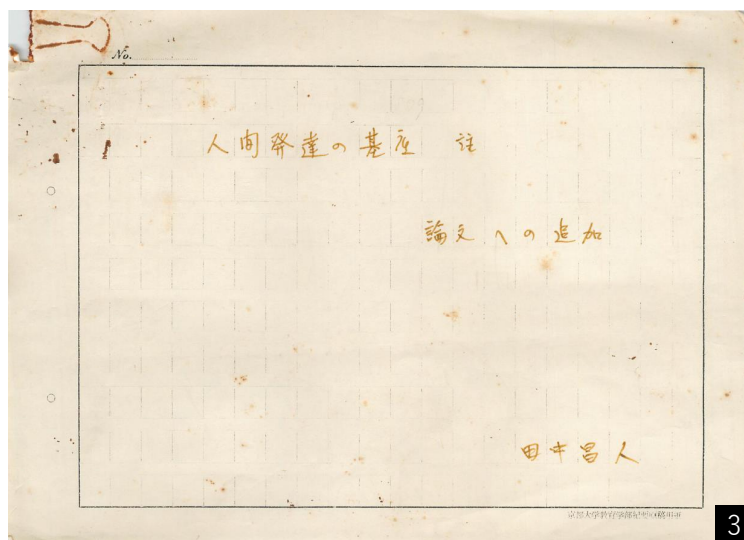 No.
人間発達の基底 註
論文への追加
田中昌人
京都大学教育学部紀要原稿用紙
3